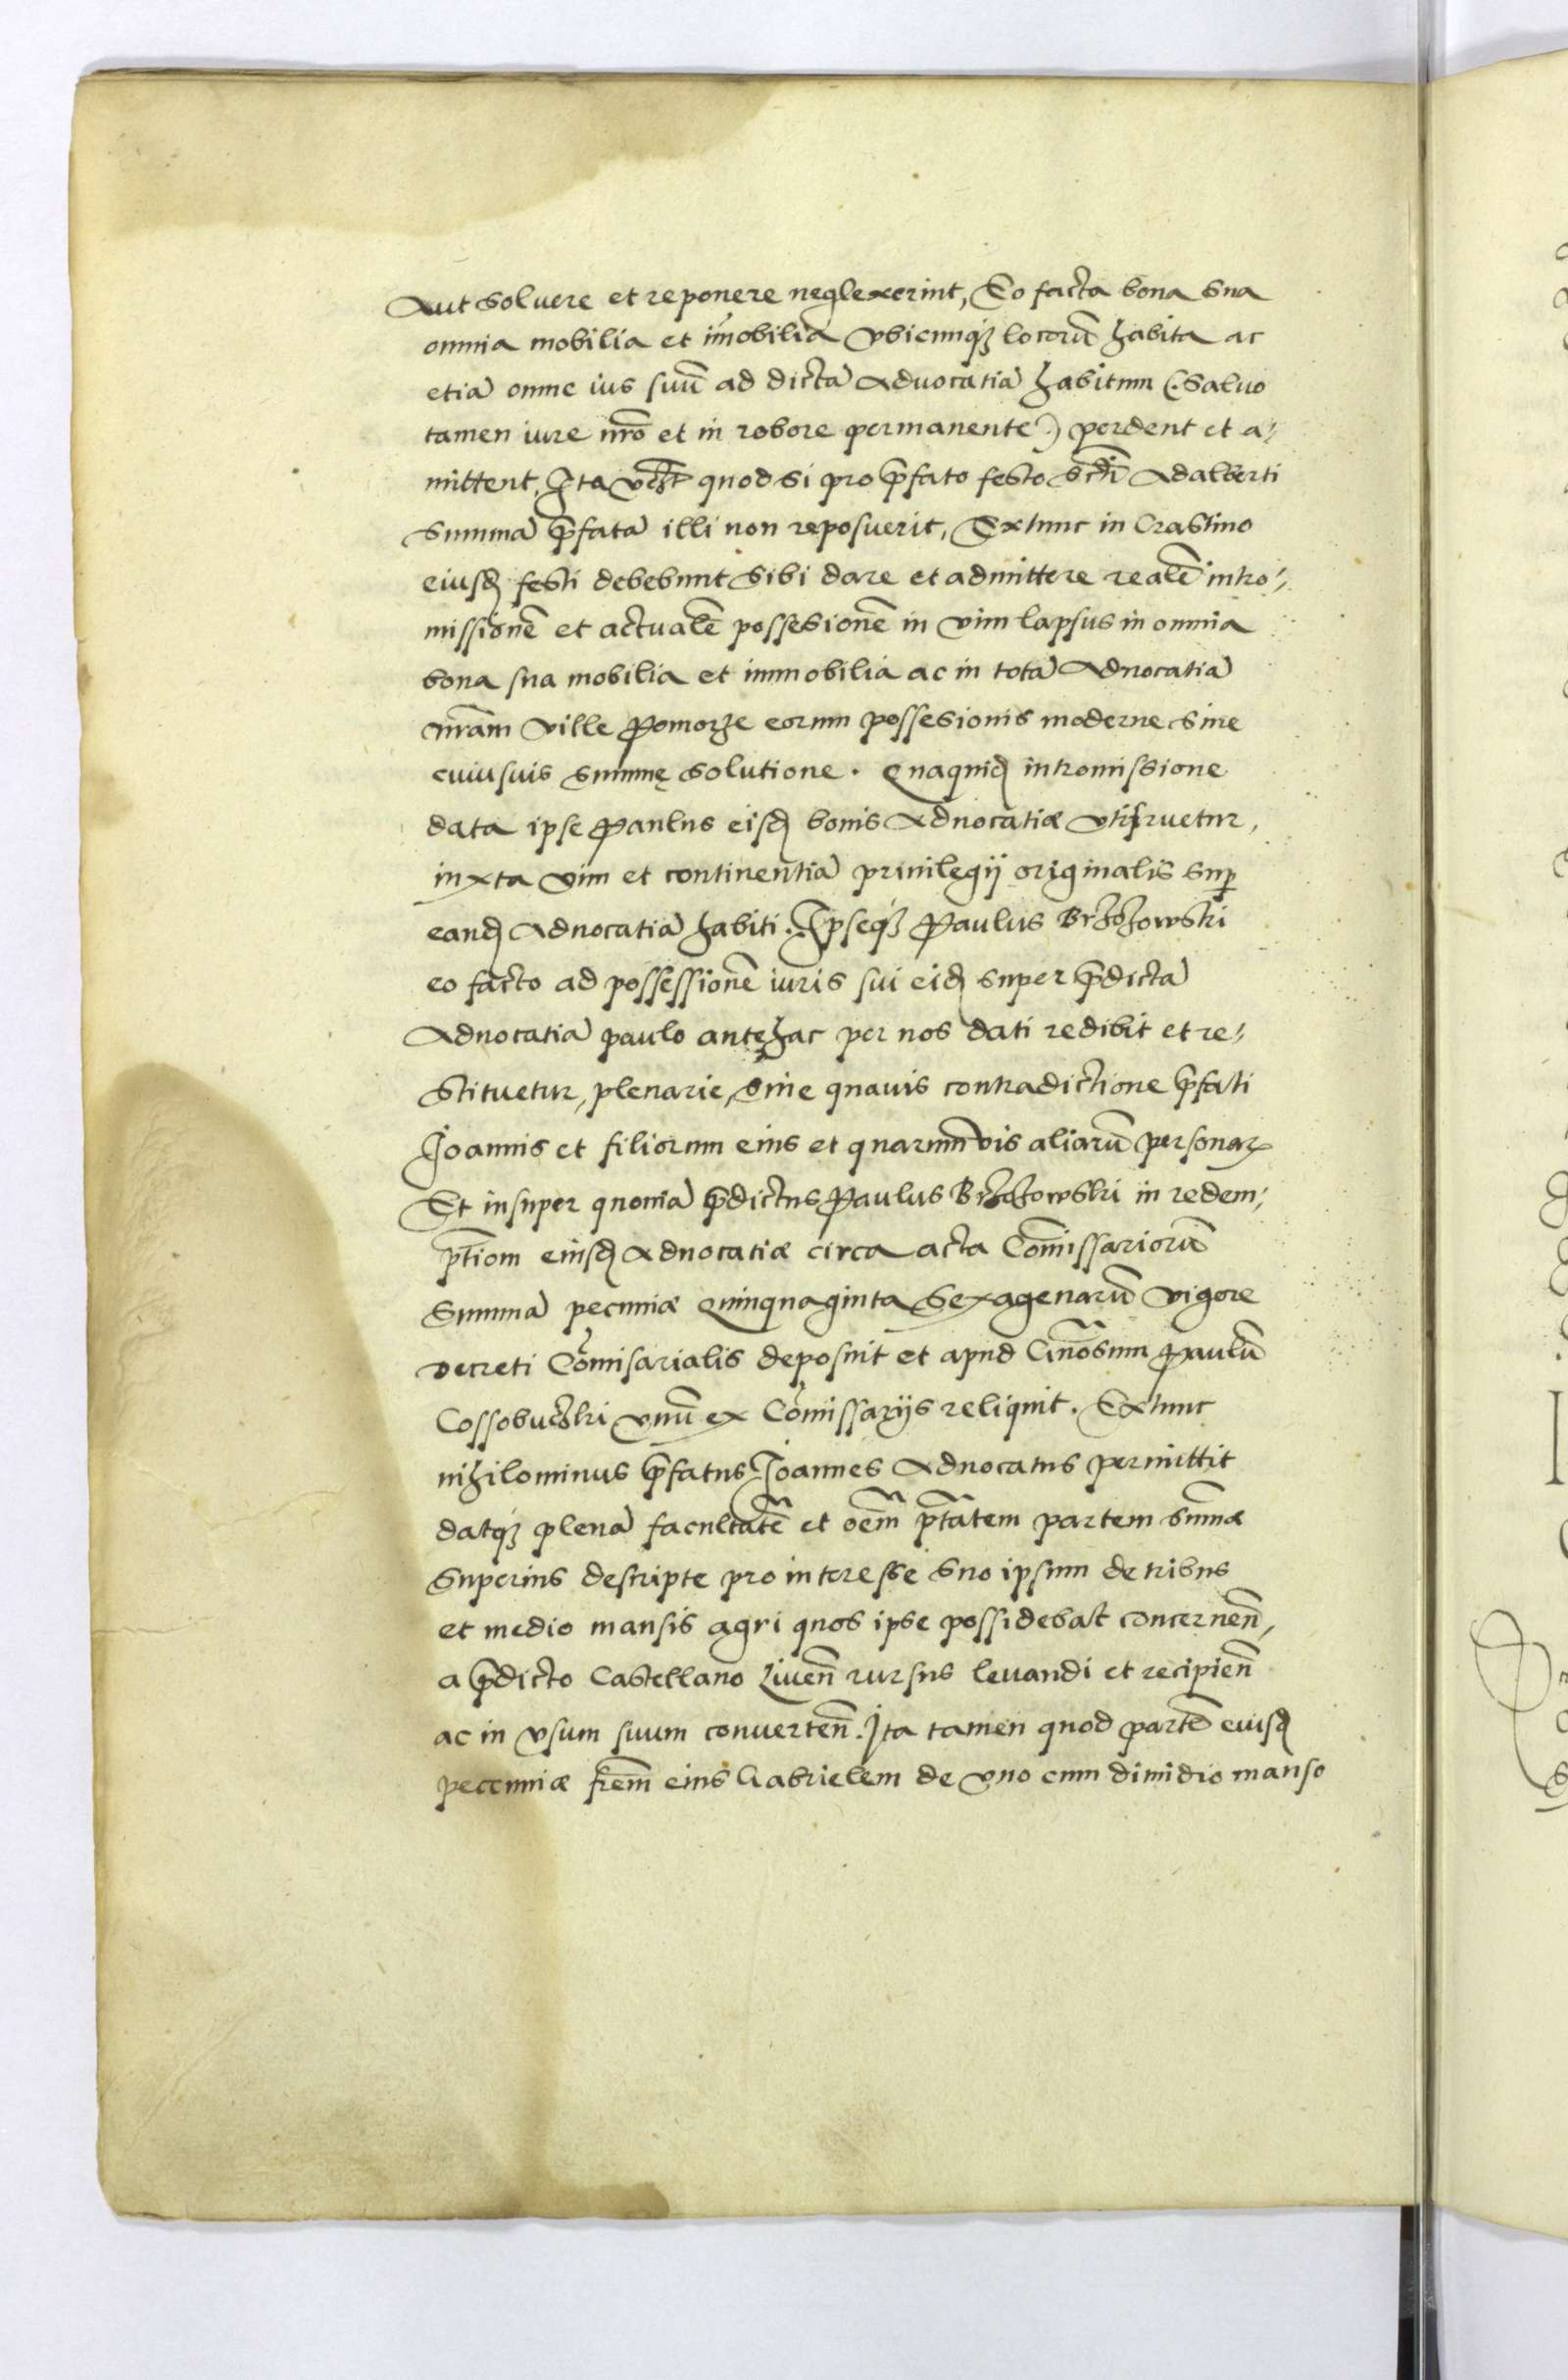 Aut soluere et reponere neglexerint, Eo facta bona sua
omnia mobilia et im̃obilia vbicunqʒ locorũ habita ac
etiã omne ius suũ ad dictã aduocatiã habitum (Saluo
tamen iure nr̃o et in robore permanente) perdent et a-
mittent, Ita vʒlt quod si pro p̃fato festo scti Adalberti
Summã p̃fatã illi non reposuerit, Extunc in Crastino
eiusd festi debebunt sibi dare et admittere realẽ intro-
missionẽ et actualẽ possesionẽ in vim lapsus in omnia
bona sua mobilia et immobilia ac in totã Aduocatiã
nr̃am ville Pomorze eorum possesionis moderne sine
cuiusuis summę solutione. Quaquid intromissione
data ipse Paulus eisd bonis Aduocatiæ vtifruetur,
iuxta vim et continentiã priuilegij originalis sup
eand Aduocatiã habiti. Ipseqʒ Paulus Brzozowski
eo facto ad possessionẽ iuris sui eid super p̃dictã
Aduocatiã paulo antęhac per nos dati redibit et re-
stituetur, plenarie, sine quauis contradictione p̃fati
Joannis et filiorum eius et quarumvis aliarũ personaꝝ
Et insuper quoniã p̃dictus Paulus Brzozowski in redem-
ptiom eiusd Aduocatiæ circa acta Com̃issariorũ
Summã pecuniæ Quinquaginta Sexagenarũ vigore
decreti Com̃isarialis deposuit et apud Gñosum Paulũ
Cossobuczki vnũ ex Com̃issarijs reliquit. Extunc
nihilominus p̃fatus Joannes Aduocatus permittit
datqʒ plenã facultatẽ et oẽm ptãtem partem sum̃æ
Superius descripte pro interesse suo ipsum de tribus
et medio mansis agri quos ipse possidebat concerneñ,
a p̃dicto Castellano Ziueñ rursus leuandi et recipieñ
ac in vsum suum conuerteñ. Ita tamen quod partẽ eiusd
peccuniæ fr̃em eius Gabrielem de vno cum dimidio manso